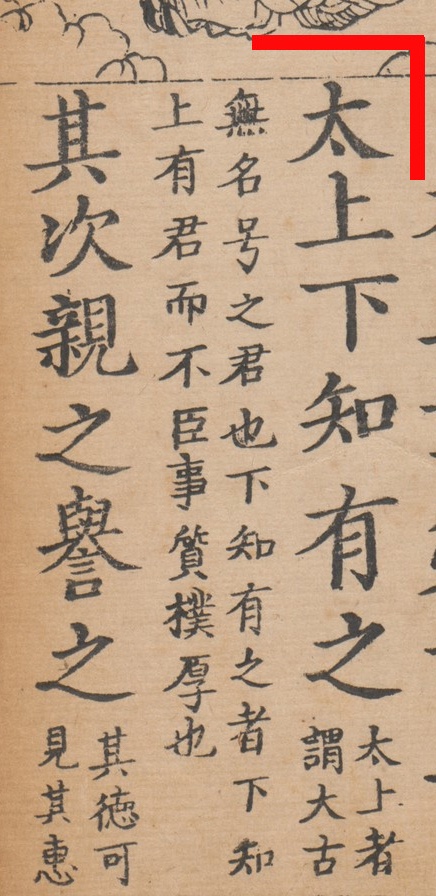 太上下知有之
太上者
謂大古
無名号之君也下知有之者下知
上有君而不臣事質樸厚也
其次親之譽之
其德可
見其惠